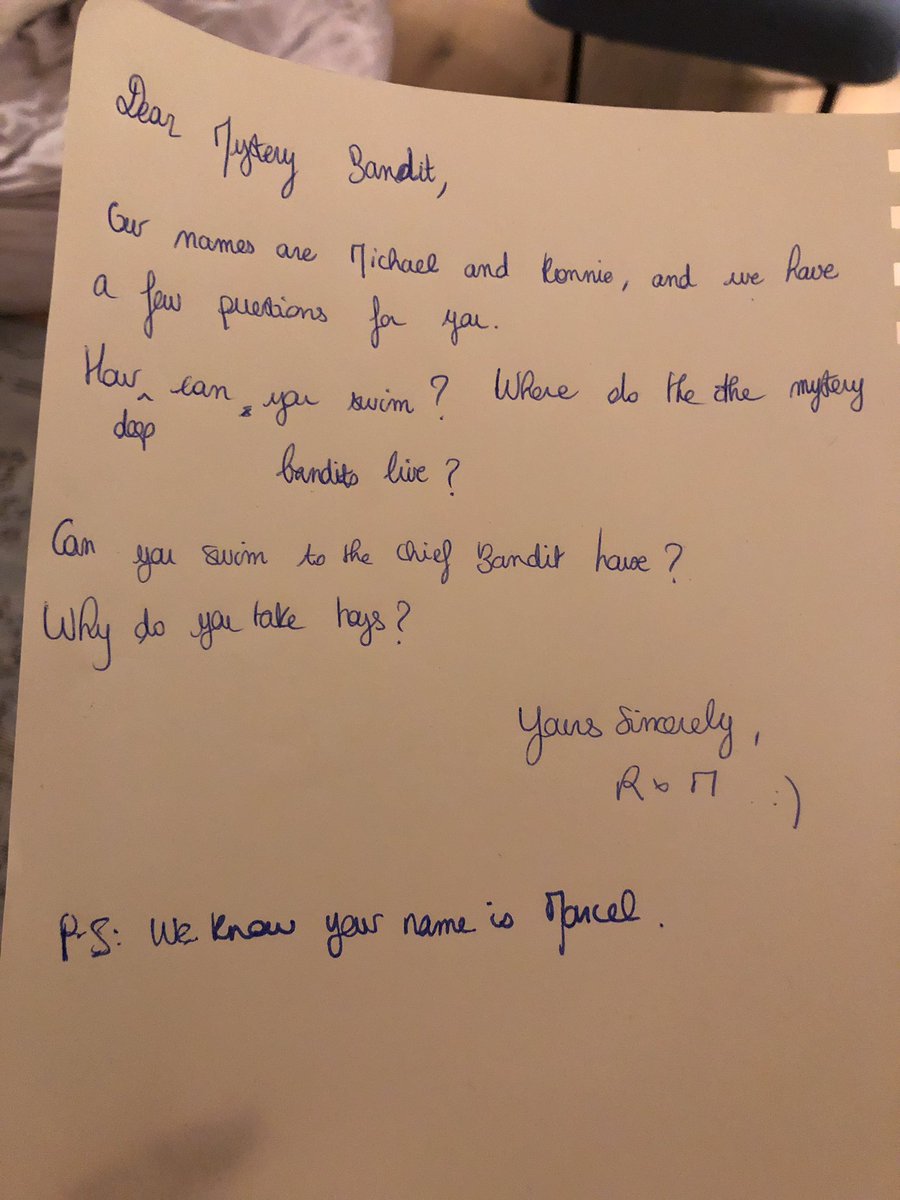 Dear Mystery Bandit,
Our names are Michael and Ronnie, and we have
a few questions for you.
How deep can you swim? Where do the the mystery
bandits live?
Can you swim to the Chief Bandit house?
Why do you take toys?
Yours Sincerely,
R & M :)
P.S: We know your name is Marcel.